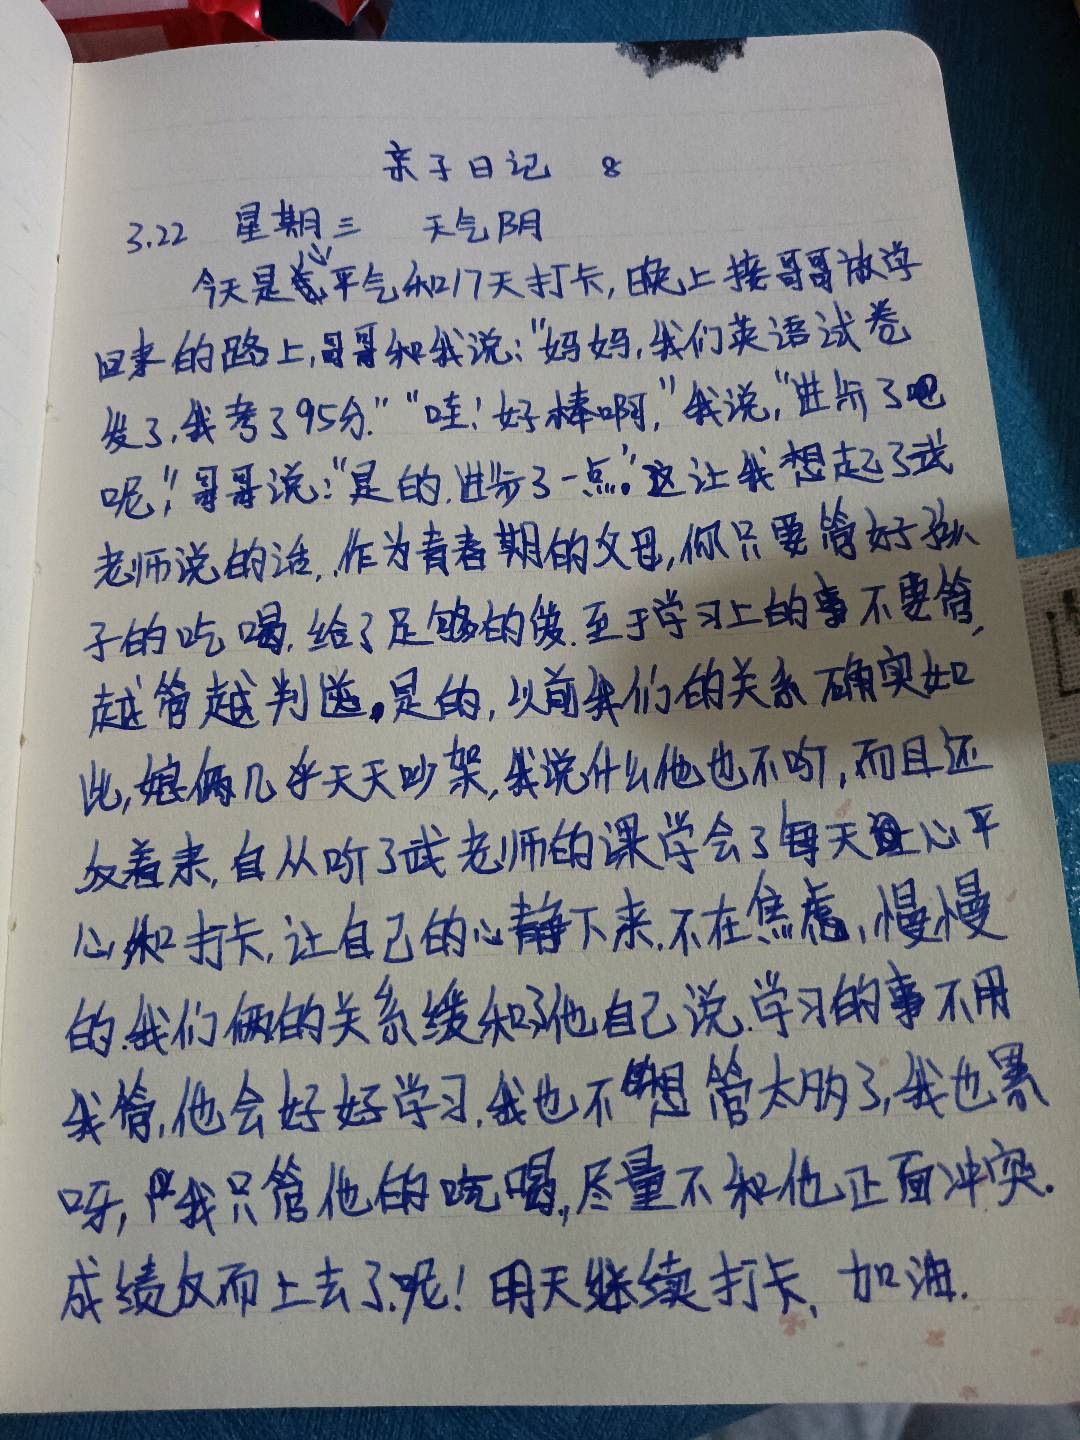 亲子日记 8
3.22 星期三 天气阴
今天是心平气和17天打卡,晚上接哥哥放学
回来的路上,哥哥和我说:"妈妈,我们英语试卷
发了,我考了95分.""哇!好棒啊,"我说,"进步了
呢,"哥哥说:"是的.进步了一点."这让我想起了武
老师说的话,作为青春期的父母,你只要管好孩
子的吃喝,给了足够的爱.至于学习上的事不要管,
越管越判逆。是的,以前我们的关系确实如
此,娘俩几乎天天吵架,我说什么他也不听,而且还
反着来,自从听了武老师的课学会了每天心平
心和打卡,让自己的心静下来,不在焦虑,慢慢
的.我们俩的关系缓和了他自己说.学习的事不用
我管,他会好好学习,我也不想管太多了,我也累
呀,我只管他的吃喝,尽量不和他正面冲突.
成绩反而上去了呢!明天继续打卡,加油.